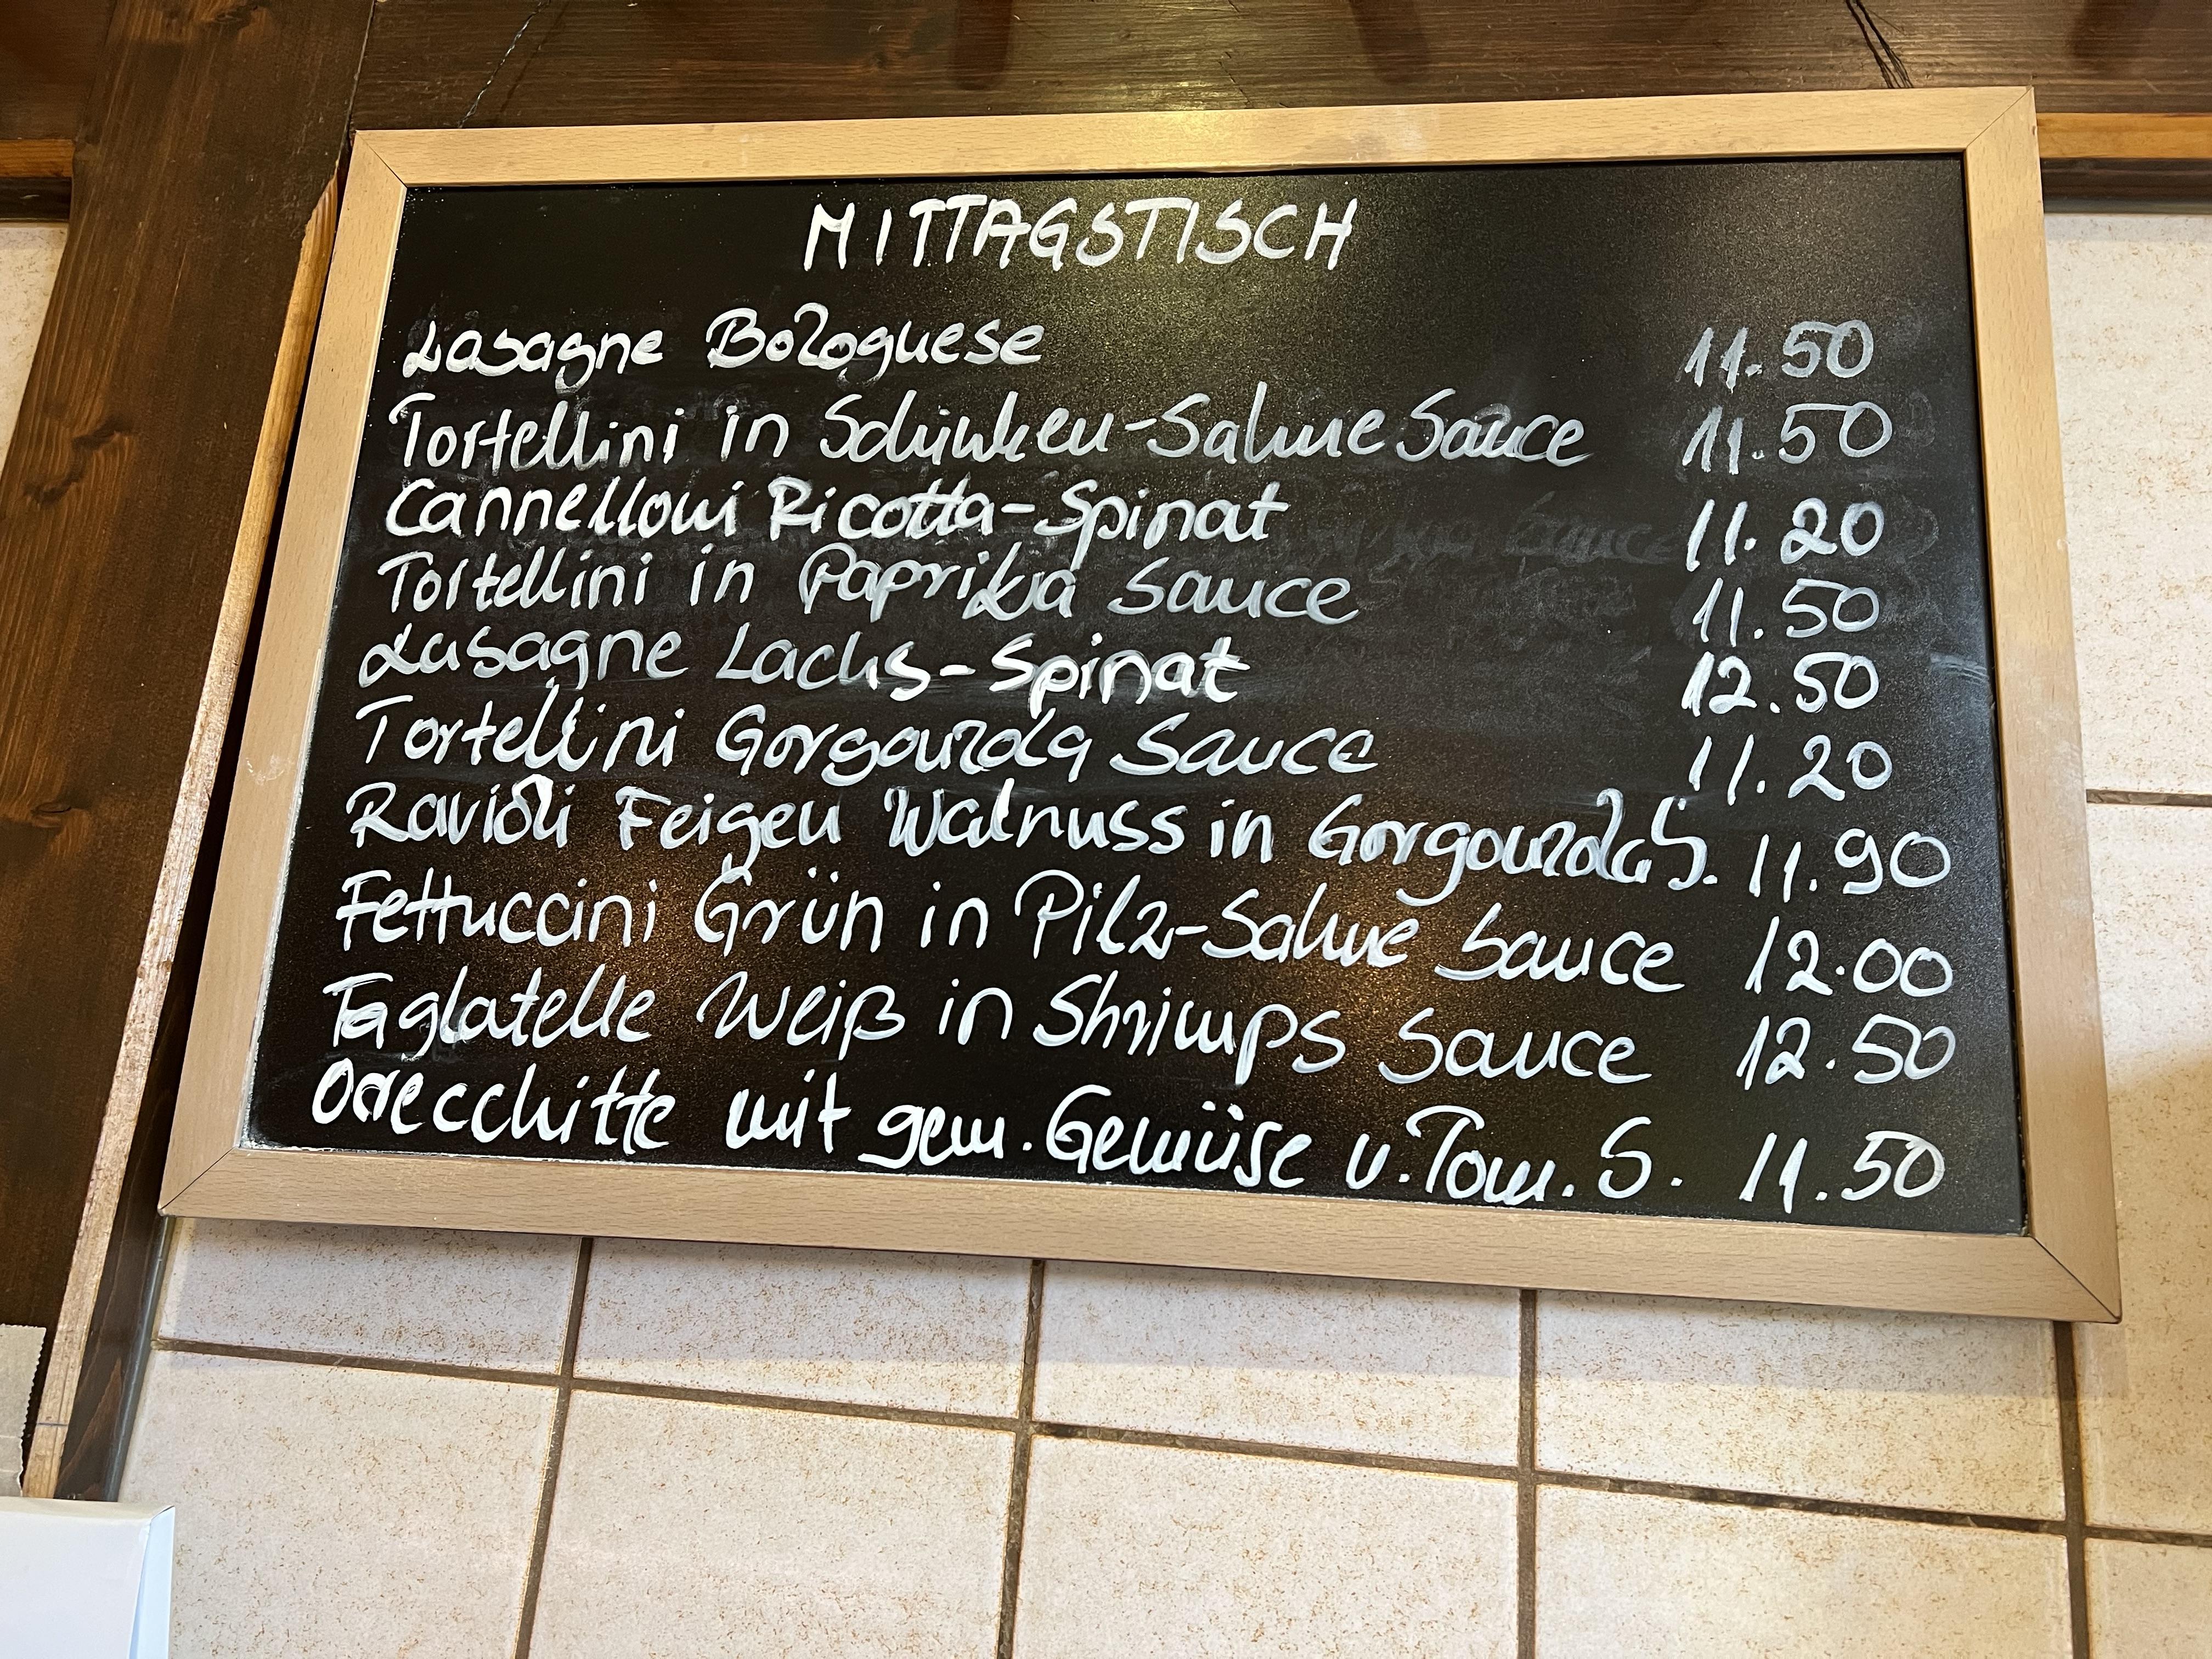 MITTAGSTISCH
Lasagne Bolognese 11.50
Tortellini in Schinken-Sahne Sauce 11.50
Cannelloni Ricotta-Spinat 11.20
Tortellini in Paprika Sauce 11.50
Lasagne Lachs-Spinat 12.50
Tortellini Gorgonzola Sauce 11.20
Ravioli Feigen Walnuss in Gorgonzola S. 11.90
Fettuccini Grün in Pilz-Sahne Sauce 12.00
Taglatelle Weiß in Shrimps Sauce 12.50
Orecchitte mit gem. Gemüse u. Tom. S. 11.50